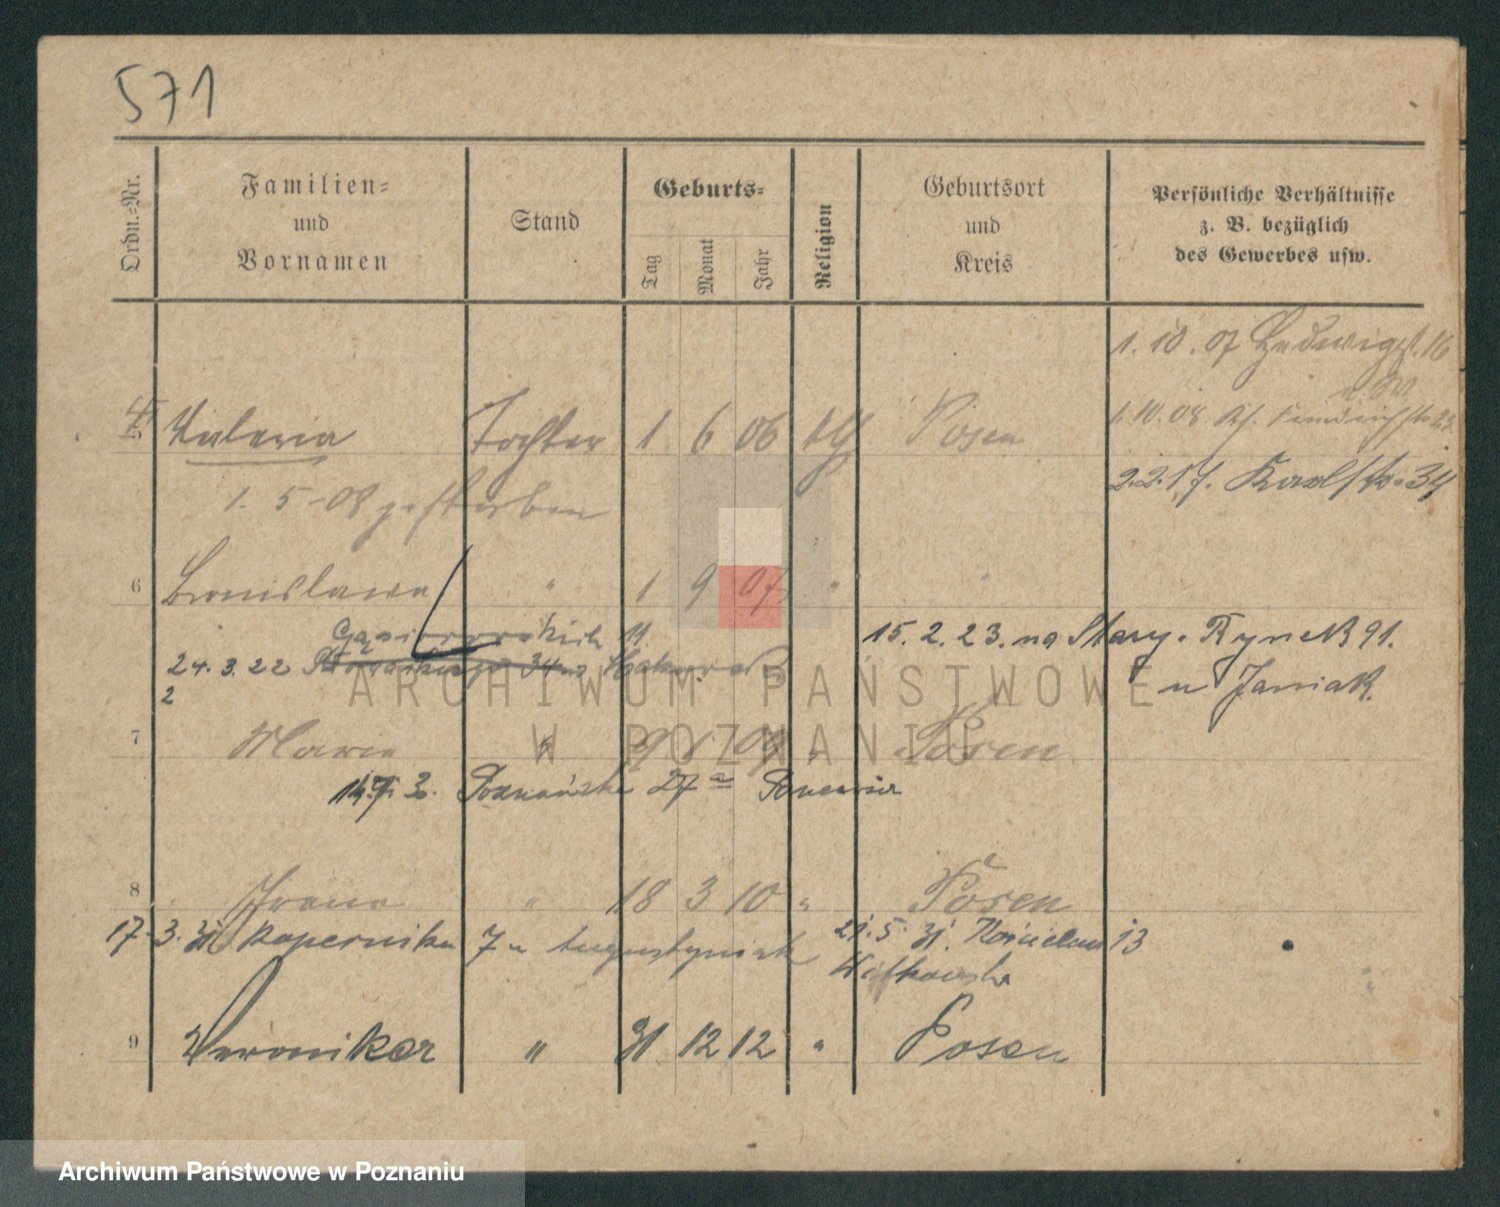 571
Ordn.-Nr.
Familien-
und
Vornamen
Stand
Geburts-
Tag
Monat
Jahr
Religion
Geburtsort
und
Kreis
Persönliche Verhältnisse
z. B. bezüglich
des Gewerbes usw.
1. 10. 07 Hedwigst. 16
Valeria Tochter 1 6 06 kth Posen
1. 10. 08
2.2.17. Karlstr. 34
1. 5 - 08 gestorben
6 Bronislawa " 1 9 07 " "
15. 2. 23. na Stary. Rynek 91.
24. 3. 22
u Janiak.
2
7 Maria " 9 09 " Posen
3. Poznańska 27a
8 Irena " 18 3 10 " Posen
17. 3. 31 Kopernika 7 u Augustyniak 21. 5. 31. 13
9 Veronika " 31 12 12 " Posen
ARCHIWUM PAŃSTWOWE
W POZNANIU
Archiwum Państwowe w Poznaniu